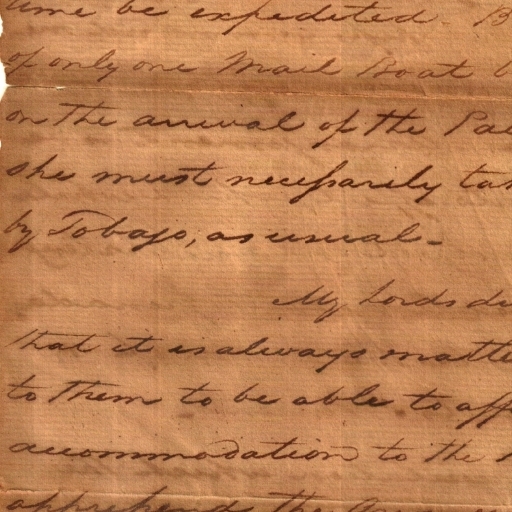 time be expedited. B
of only one Mail Boat b
on the arrival of the Pac
she must necessarily tak
by Tobago, as usual.
My Lords de
that it is always matte
to them to be able to aff
accommodation to the
apprehend the